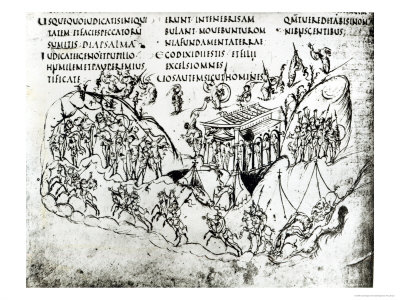 USQUEQUOIUDICATISINIQUI
TATEM ETFACIESPECCATORU
SUMITIS DIAPSALMA
IUDICATEEGENOETPUPILLO
HUMILEMETPAUPEREMIUS
TIFICATE
ERUNT INTENEBRISAM
BULANT MOVEBUNTUROM
NIAFUNDAMENTATERRAE
EGODIXIDIIESTIS ETFILII
EXCELSIOMNES
UOSAUTEMSICUTHOMINES
QMTUEREDITABISINOM
NIBUSGENTIBUS